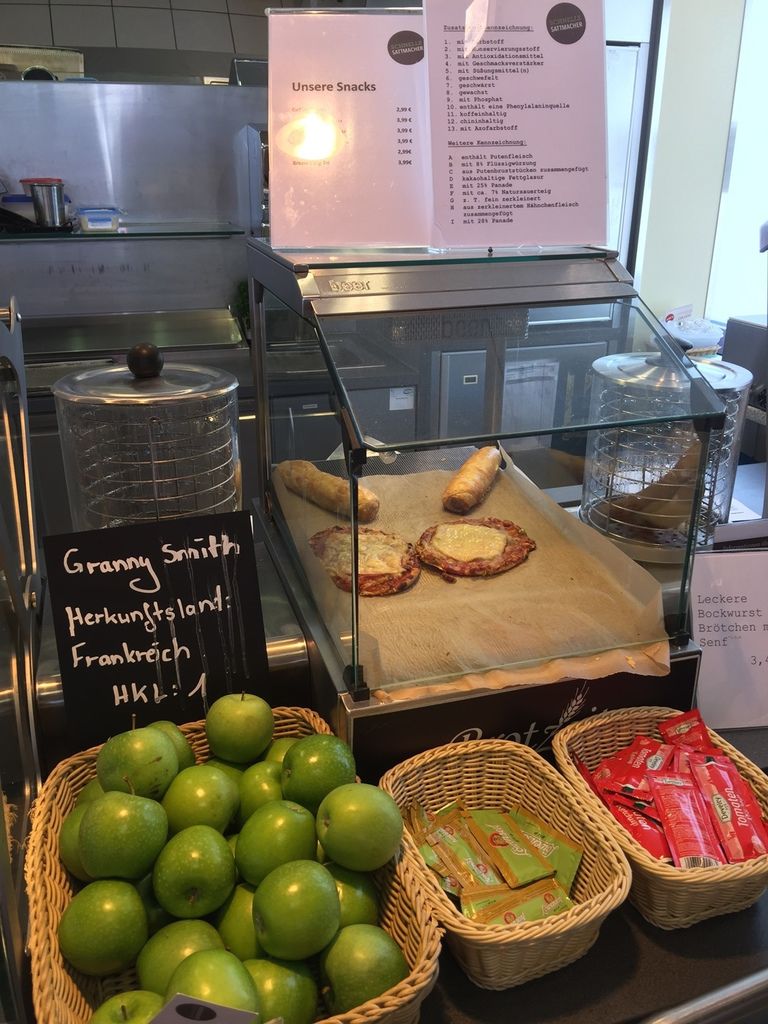 SCHNELLE
SATTMACHER
Unsere Snacks
3,99 €
3,99 €
3,99 €
3,99 €
2,99€
3,99€
SCHNELLE
SATTMACHER
Zusatzstoffkennzeichnung:
1. mit Farbstoff
2. mit Konservierungsstoff
3. mit Antioxidationsmittel
4. mit Geschmacksverstärker
5. mit Süßungsmittel(n)
6. geschwefelt
7. geschwärzt
8. gewachst
9. mit Phosphat
10. enthält eine Phenylalaninquelle
11. koffeinhaltig
12. chininhaltig
13. mit Azofarbstoff
Weitere Kennzeichnung:
A enthält Putenfleisch
B mit 8% Flüssigwürzung
C aus Putenbruststücken zusammengefügt
D kakaohaltige Fettglasur
E mit 25% Panade
F mit ca. 7% Natursauerteig
G z. T. fein zerkleinert
H aus zerkleinertem Hähnchenfleisch
zusammengefügt
I mit 28% Panade
beer
Granny Smith
Herkunftsland:
Frankreich
HKL: 1
Leckere
Bockwurst
Brötchen m
Senf
3,
Brotzeit
Develey
Tomaten